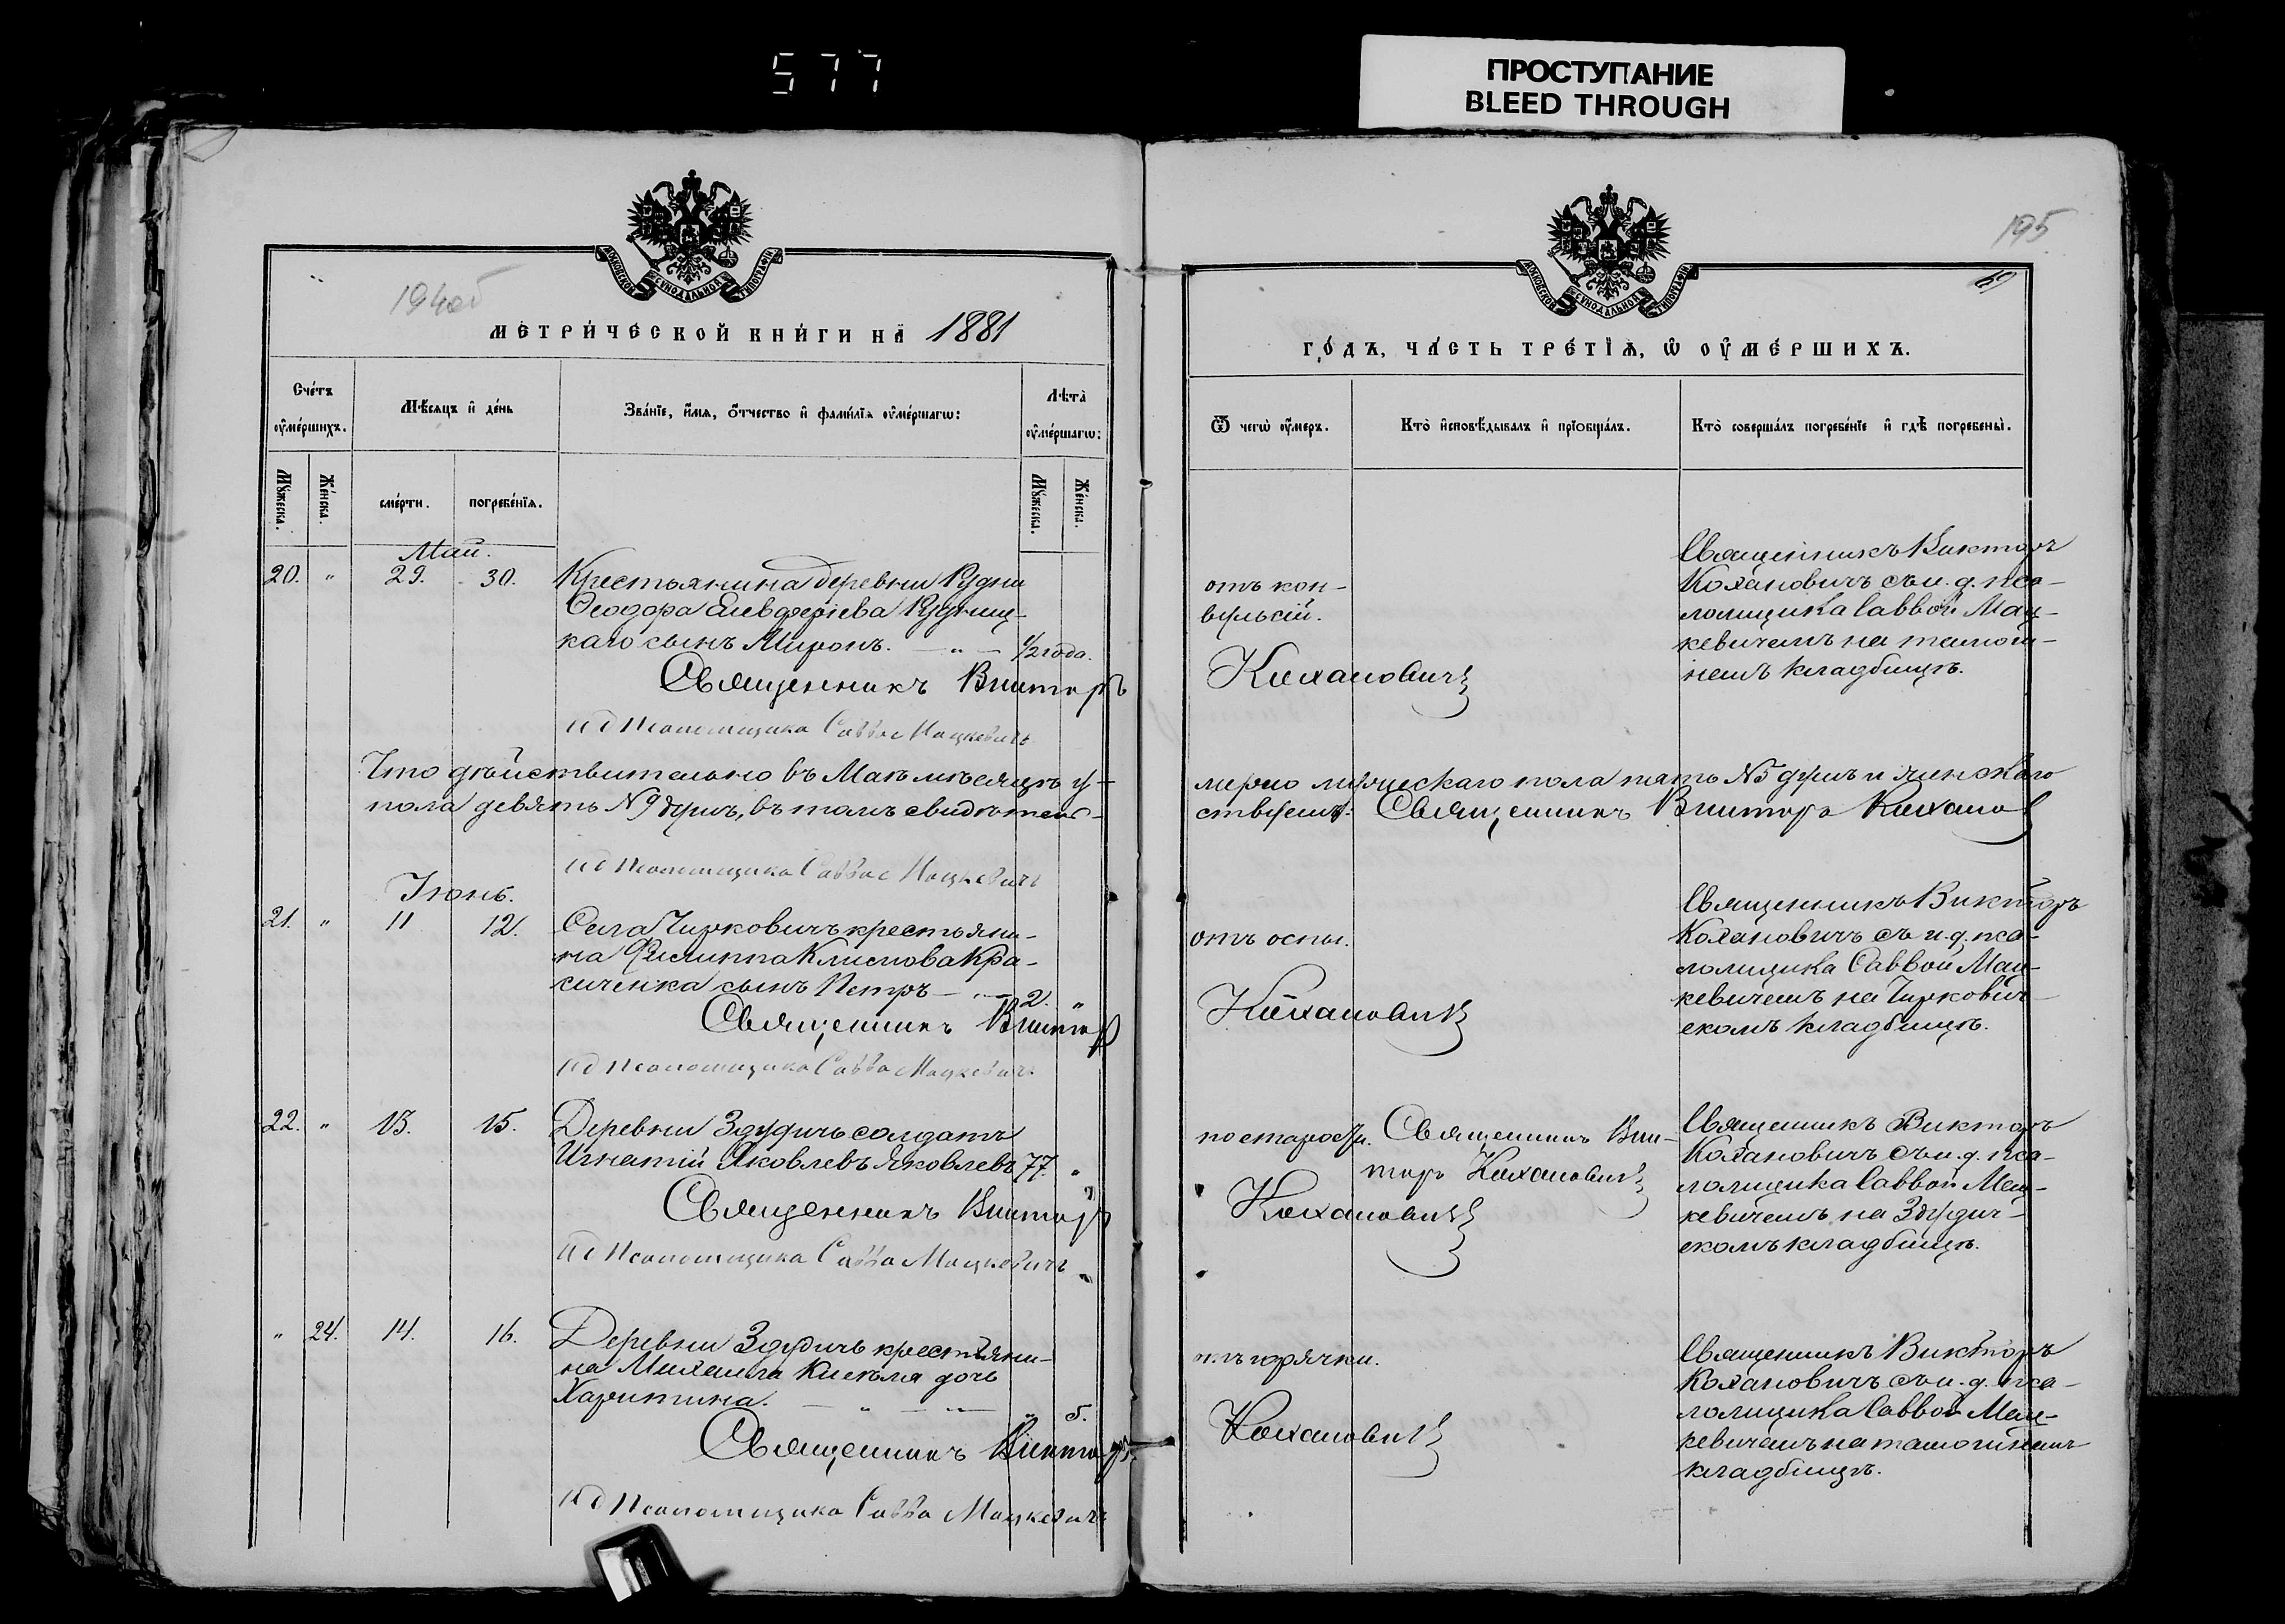 577
ПРОСТУПАНИЕ
BLEED THROUGH
194об
195
МОСКОВСКОЙ СѴНОДАЛЬНОЙ ТИПОГРАФІИ
МЕТРИ́ЧЕСКОЙ КНИ́ГИ НА 1881
Сче́тъ ᲂу҆ме́ршихъ.
Мѣ́сяцъ и҆ де́нь
Зва́нїе, и҆́мѧ, ѻ҆́тчество и҆ фами́лїѧ ᲂу҆ме́ршагѡ:
Лѣта̀ ᲂу҆ме́ршагѡ:
Мꙋ́жеска.
Же́нска.
сме́рти.
погребе́нїѧ.
Мꙋ́жеска.
Же́нска.
Май.
20. " 29. 30. Крестьянина деревни Рудни
Ѳеодора Елевферіева Рудниц-
каго сынъ Миронъ. — " — 1/2 года.
Священникъ Викторъ
И д Псаломщика Савва Мацкевичъ
Что дѣйствительно въ Маѣ мѣсяцѣ у-
пола девять № 9 душъ, въ томъ свидѣтель-
И д Псаломщика Савва Мацкевичъ
Іюнь.
21. " 11 12. Села Чирковичъ крестьяни-
на Филиппа Климова Кра-
сиченка сынъ Петръ — " — 2. "
Священникъ Викторъ
И д Псаломщика Савва Мацкевичъ
22. " 13. 15. Деревни Здудичъ солдатъ
Игнатій Яковлевъ Яковлевъ 77. "
Священникъ Викторъ
И д Псаломщика Савва Мацкевичъ
" 24. 14. 16. Деревни Здудичъ крестьяни-
на Михаила дочь
Харитина. — " — " — " 5.
Священникъ Викторъ
И д Псаломщика Савва Мацкевичъ
МОСКОВСКОЙ СѴНОДАЛЬНОЙ ТИПОГРАФІИ
ГО́ДЪ, ЧА́СТЬ ТРЕ́ТЇѦ, Ѡ҆ ОУ҆МЕ́РШИХЪ.
Ѿ чегѡ̀ ᲂу҆́меръ.
Кто̀ и҆сповѣ́дывалъ и҆ прїѡбща́лъ.
Кто̀ соверша́лъ погребе́нїе и҆ гдѣ̀ погребены̀.
отъ кон-
вульсій.
Кохановичъ
Священникъ Викторъ
Кохановичъ съ и. д. пса-
ломщика Саввой Мац-
кевичемъ на тамош-
немъ кладбищѣ.
мерло мужескаго пола пять № 5 душъ и женскаго
ствуемъ: Священникъ Викторъ Кохано
отъ оспы.
Кохановичъ
Священникъ Викторъ
Кохановичъ съ и. д. пса-
ломщика Саввой Мац-
кевичемъ на Чиркович-
скомъ кладбищѣ.
по старости.
Священникъ Вик-
торъ Кохановичъ
Кохановичъ
Священникъ Викторъ
Кохановичъ съ и. д. пса-
ломщика Саввой Мац-
кевичемъ на Здудич-
скомъ кладбищѣ.
отъ горячки.
Кохановичъ
Священникъ Викторъ
Кохановичъ съ и. д. пса-
ломщика Саввой Мац-
кевичемъ на тамошнемъ
кладбищѣ.